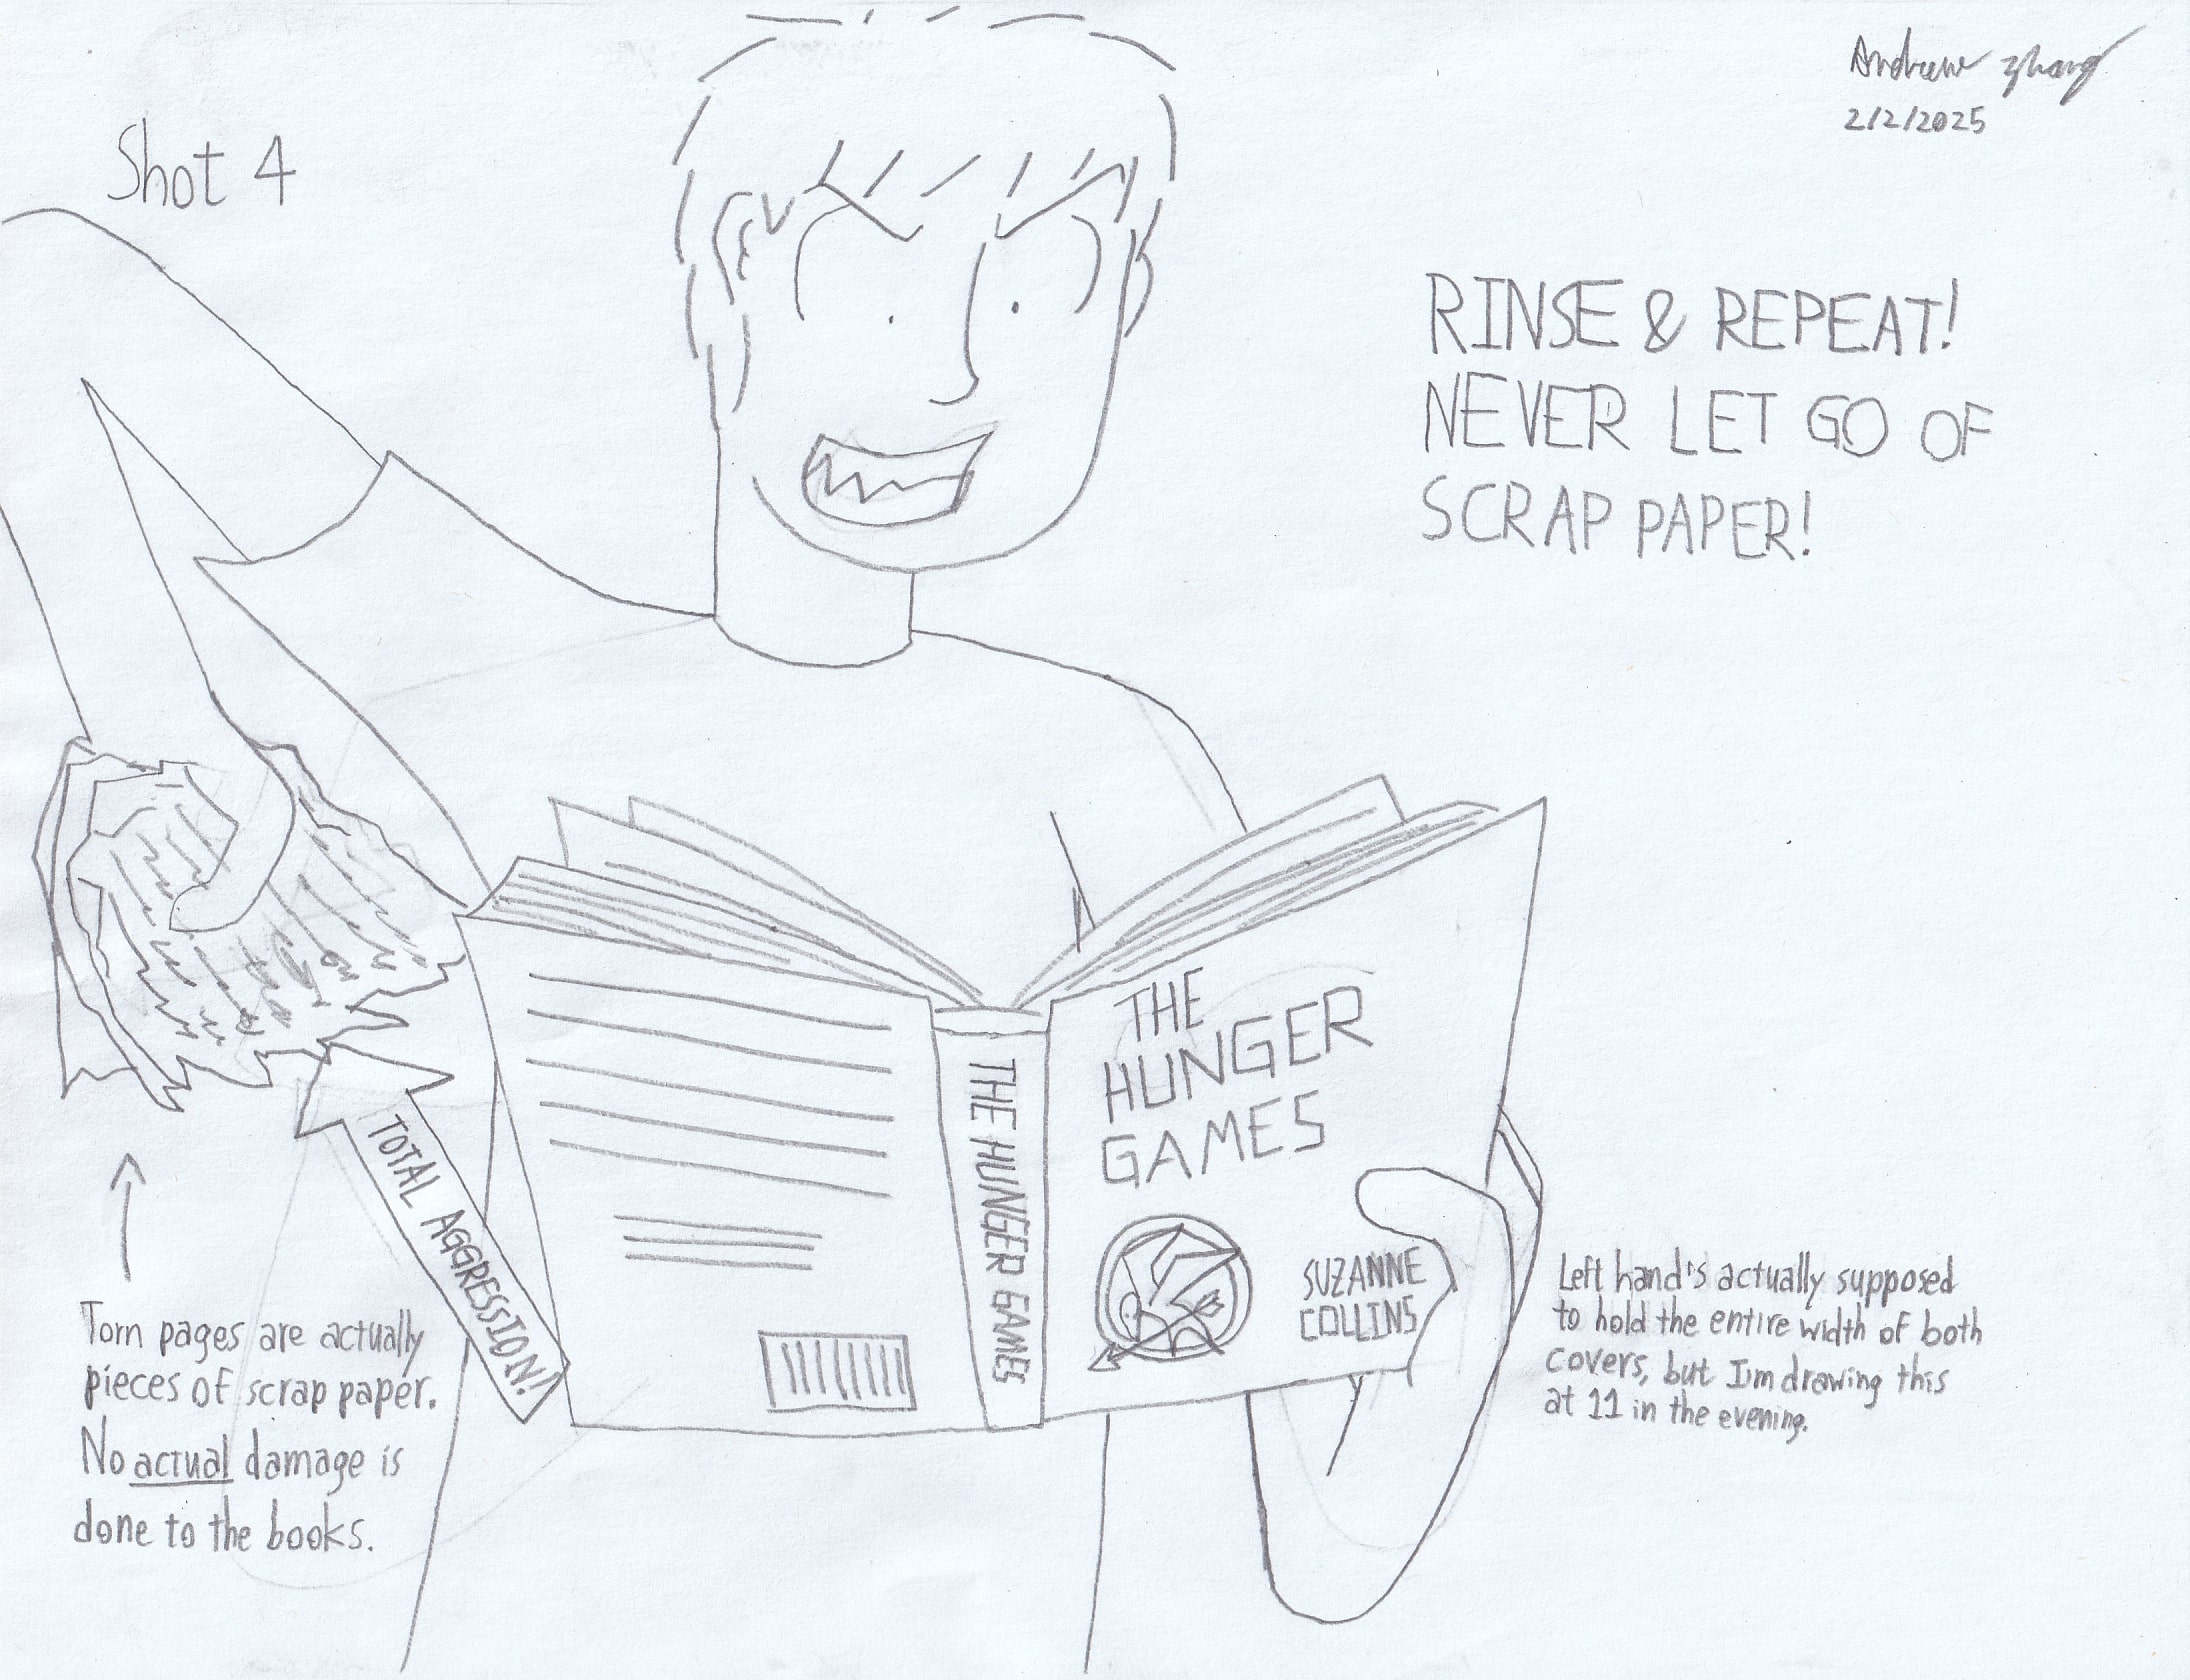 Andrew Zhang
2/2/2025
Shot 4
RINSE & REPEAT!
NEVER LET GO OF
SCRAP PAPER!
THE
HUNGER
GAMES
SUZANNE
COLLINS
THE HUNGER GAMES
TOTAL AGGRESSION!
Torn pages are actually
pieces of scrap paper.
No actual damage is
done to the books.
Left hand's actually supposed
to hold the entire width of both
covers, but I'm drawing this
at 11 in the evening.